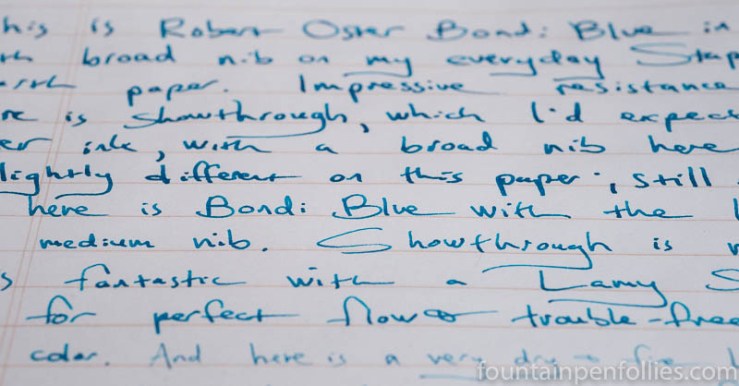 his is Robert Oster Bondi Blue in
th broad nib on my everyday Stap
arth paper. Impressive resistance
re is showthrough, which I'd expec
er ink, with a broad nib here
lightly different on this paper; still
here is Bondi Blue with the
medium nib. Showthrough is
s fantastic with a Lamy S
for perfect flow trouble-free
color. And here is a very dry fine
fountainpenfollies.com